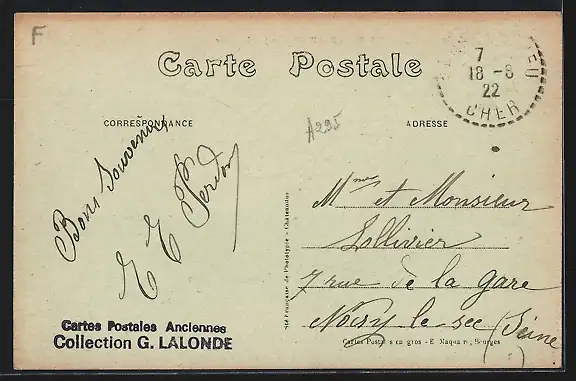 F
Carte Postale
7
18-8
22
CHER
CORRESPONDANCE
A295
ADRESSE
Bons Souvenirs
E E Perdon
Mme et Monsieur
Lollivier
7 rue de la gare
Noisy le sec
(Seine)
Sté Française de Phototypie - Châteaudun
Cartes Postales en gros - E. Maquaire, Bourges
Cartes Postales Anciennes
Collection G. LALONDE